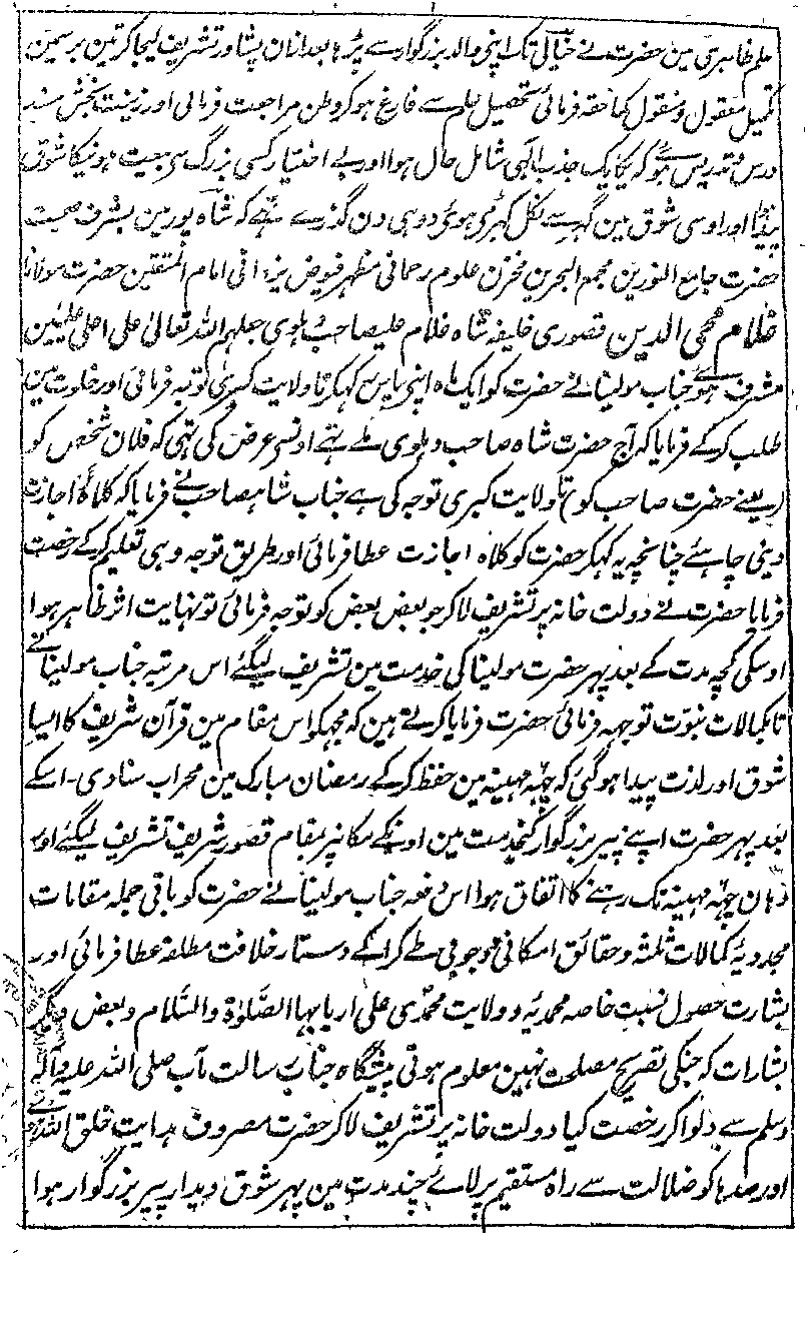 علم ظاہری مین حضرت نے خیالی تک اپنی والد بزرگوار سے پڑہا بعد ازان پشاور تشریف لیجا کر تین برسمین
تکمیل معقول و منقول کما حقہ فرمائی تحصیل علم سے فارغ ہو کر وطن مراجعت فرمائی اور زینت بخش مسند
درس و تدریس ہوئے کہ یکایک جذب الٰہی شامل حال ہوا اور بے اختیار کسی بزرگ سی بیعت ہونیکا شوق
پیدا اور اوسی شوق مین گہر سے نکل کہڑی ہوئی دو ہی دن گذرے تہے کہ شاہ پور مین بشرف صحبت
حضرت جامع النورین مجمع البحرین مخزن علوم رحمانی مظہر فیوض یزدانی امام المتقین حضرت مولانا
غلام محی الدین قصوری خلیفہ شاہ غلام علیصاحب دہلوی جعلہم اللہ تعالیٰ علی اعلی علیین
مشرف ہوئے جناب مولینا نے حضرت کو ایک ماہ اپنی پاس رکہکر تا ولایت کبری توجہ فرمائی اور خلوت مین
طلب کر کے فرمایا کہ آج حضرت شاہ صاحب دہلوی ملے تہے اونسے عرض کی تہی کہ فلان شخص کو
(یعنے حضرت صاحب کو) تا ولایت کبری توجہ کی ہے جناب شاہصاحب نے فرمایا کہ کلاہ اجازت
دینی چاہئے چنانچہ یہ کہکر حضرت کو کلاہ اجازت عطا فرمائی اور طریق توجہ وہی تعلیم کر کے رخصت
فرمایا حضرت نے دولت خانہ پر تشریف لا کر جو بعض بعض کو توجہ فرمائی تو نہایت اثر ظاہر ہوا
اوسکی کچہ مدت کے بعد پہر حضرت مولینا کی خدمت مین تشریف لیگئے اس مرتبہ جناب مولینا نے
تا کمالات نبوت توجہہ فرمائی حضرت فرمایا کرتے ہین کہ مجہکو اس مقام مین قرآن شریف کا ایسا
شوق اور لذت پیدا ہو گئی کہ چہہ مہینہ مین حفظ کر کے رمضان مبارک مین محراب سنا دی۔ اسکے
بعد پہر حضرت اپنے پیر بزرگوار کیخدمت مین اونکے مکانپر بمقام قصور شریف تشریف لیگئے اور
وہان چہہ مہینہ تک رہنے کا اتفاق ہوا اس دفعہ جناب مولینا نے حضرت کو باقی جملہ مقامات
مجددیہ کمالات ثلثہ و حقائق امکانی و وجوبی طے کرا کے دستار خلافت مطلقہ عطا فرمائی اور
بشارت حصول نسبت خاصہ محمدیہ و ولایت محمدی علی اربابہا الصلوٰۃ والسلام و بعض دیگر
بشارات کہ جنکی تصریح مصلحت نہین معلوم ہوتی پیشگاہ جناب رسالت مآب صلی اللہ علیہ وآلہ
وسلم سے دلوا کر رخصت کیا دولت خانہ پر تشریف لا کر حضرت مصروف ہدایت خلق اللہ ہوئے
اور صدہا کو ضلالت سے راہ مستقیم پر لائے چند مدت مین پہر شوق دیدار پیر بزرگوار ہوا